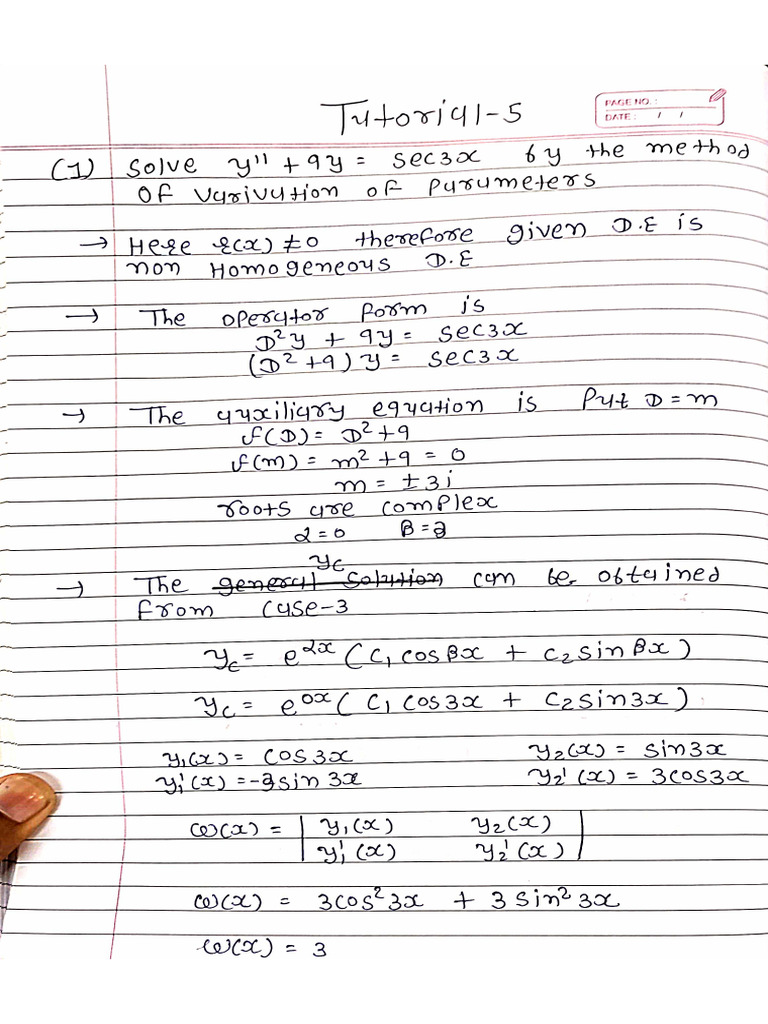 Tutorial-5
PAGE NO. :
DATE : / /
(1) Solve y'' + 9y = sec3x by the method
of variation of parameters
→ Here r(x) ≠ 0 therefore given D.E is
non Homogeneous D.E
→ The operator form is
D²y + 9y = sec3x
(D² + 9) y = sec3x
→ The auxiliary equation is Put D = m
f(D) = D² + 9
f(m) = m² + 9 = 0
m = ± 3i
roots are complex
α = 0 β = 3
yc
→ The general solution can be obtained
from case-3
yc = e^αx ( C₁ cosβx + C₂ sinβx )
yc = e^0x ( C₁ cos3x + C₂ sin3x )
y₁(x) = cos3x y₂(x) = sin3x
y₁'(x) = -3sin3x y₂'(x) = 3cos3x
ω(x) = | y₁(x) y₂(x) |
| y₁'(x) y₂'(x) |
ω(x) = 3cos²3x + 3 sin²3x
ω(x) = 3